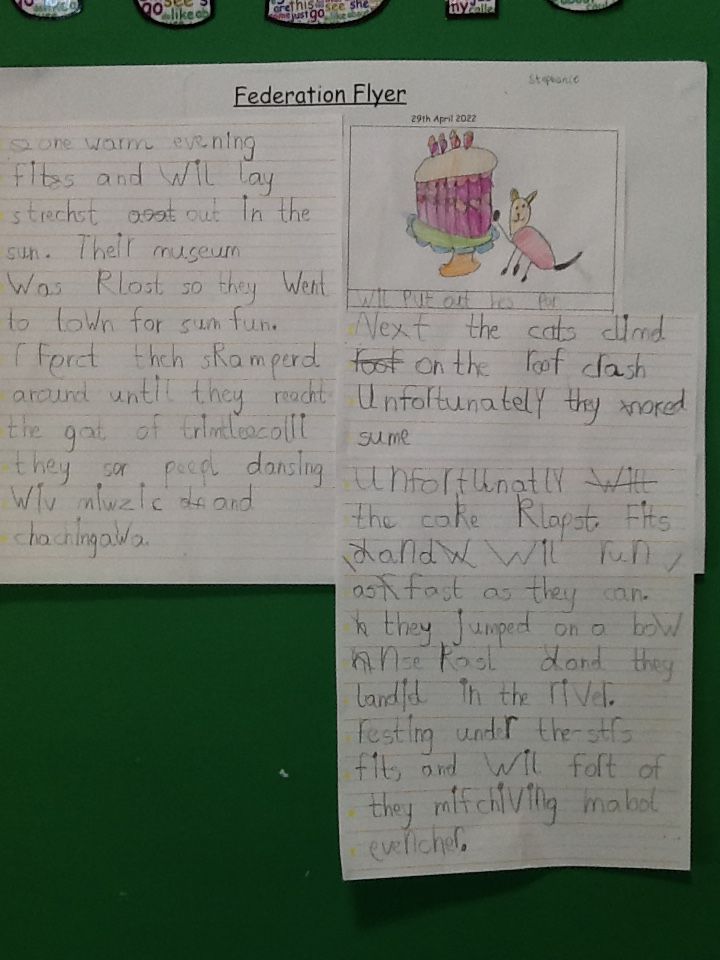 go see s
like
are this see she
me just go
my
Stephanie
Federation Flyer
29th April 2022
one warm evening
fites and Wil lay
strechst out in the
sun. Their museum
Was Klost so they Went
to town for sum fun.
thch skamperd
around until they reacht
the gat of trimleecolli
they sor peepl dansing
Wiv miwzic and
chachingawa.
Wil put out his par
Next the cats climd
roof on the roof clash
Unfortunately they knoked
sume
Unfortunatly Wil
the cake Klapst. Fits
and Wil run
as fast as they can.
they jumped on a bow
nse Kasl and they
landid in the river.
resting under the stis
fits and Wil foit of
they mifchiving mabot
evericher.